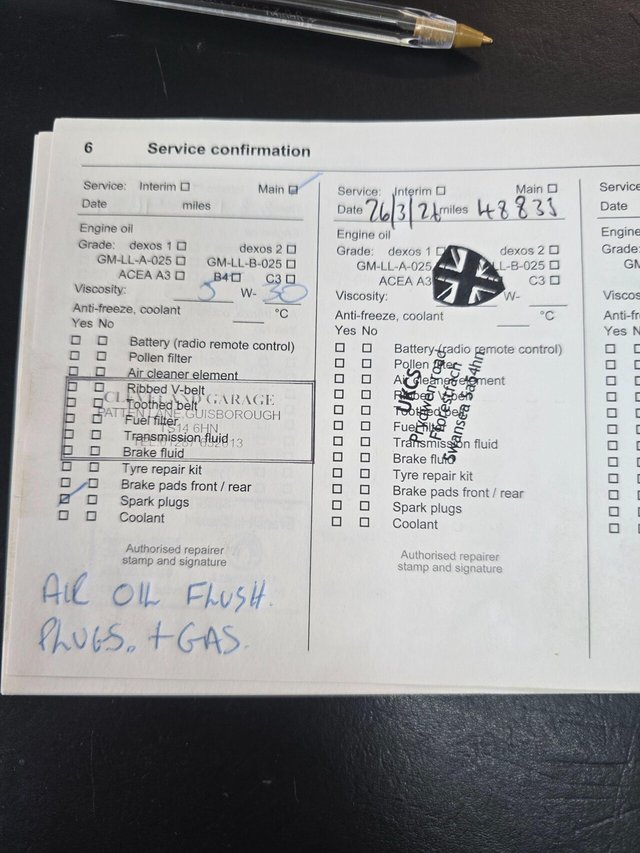 6 Service confirmation
Service: Interim Main
Date miles
Engine oil
Grade: dexos 1 dexos 2
GM-LL-A-025 GM-LL-B-025
ACEA A3 B4 C3
Viscosity: 5 W- 30
Anti-freeze, coolant °C
Yes No
Battery (radio remote control)
Pollen filter
Air cleaner element
Ribbed V-belt
Toothed belt
Fuel filter
Transmission fluid
Brake fluid
CLEVELAND GARAGE
PATTEN LANE, GUISBOROUGH
TS14 6HN
Tyre repair kit
Brake pads front / rear
Spark plugs
Coolant
Authorised repairer
stamp and signature
AIR OIL FLUSH.
PLUGS. + GAS.
Service: Interim Main
Date 26/3/26 miles 48833
Engine oil
Grade: dexos 1 dexos 2
GM-LL-A-025 LL-B-025
ACEA A3 C3
Viscosity: W-
Anti-freeze, coolant °C
Yes No
Battery (radio remote control)
Pollen filter
Air cleaner element
Ribbed V-belt
Toothed belt
Fuel filter
Transmission fluid
Brake fluid
UKCS
Fforestfach
Swansea
Tyre repair kit
Brake pads front / rear
Spark plugs
Coolant
Authorised repairer
stamp and signature
Service
Date
Engine
Grade:
GM
Viscos
Anti-fr
Yes N